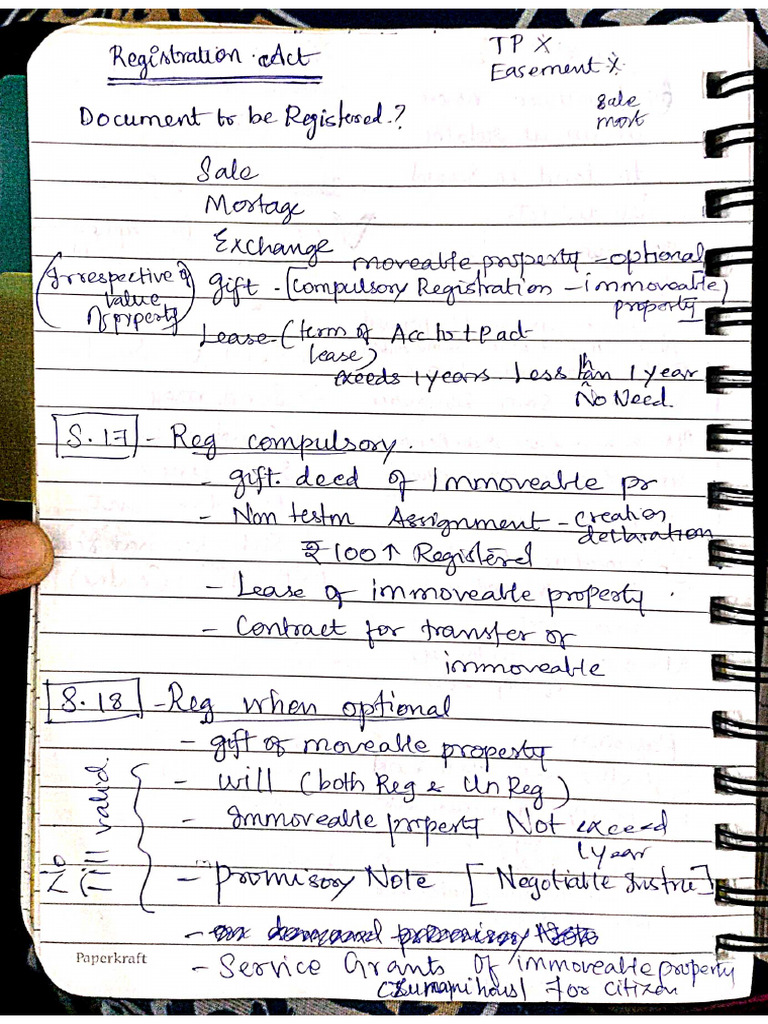 Registration Act
TP X
Easement X
Sale
mort
Document to be Registered.?
Sale
Mortage
Exchange
moveable property - optional
(Irrespective of value of property) gift - [Compulsory Registration - immoveable property]
Lease (term of lease) Acc to t p act
exeeds 1 years Less than 1 year
No Need.
S.17 - Reg compulsory.
- gift deed of Immoveable pr
- Non testm Assignment - creation
declaration
₹ 100 ↑ Registered
- Lease of immoveable property.
- Contract for transfer of
immoveable
S.18 - Reg when optional
- gift of moveable property
- will (both Reg & Un Reg)
- Immoveable property Not exceed
1 year
- Promisory Note [Negotiable Instru]
- on demand promisory Note
- Service Grants of immoveable property
for citizen
No
till valid.
Paperkraft